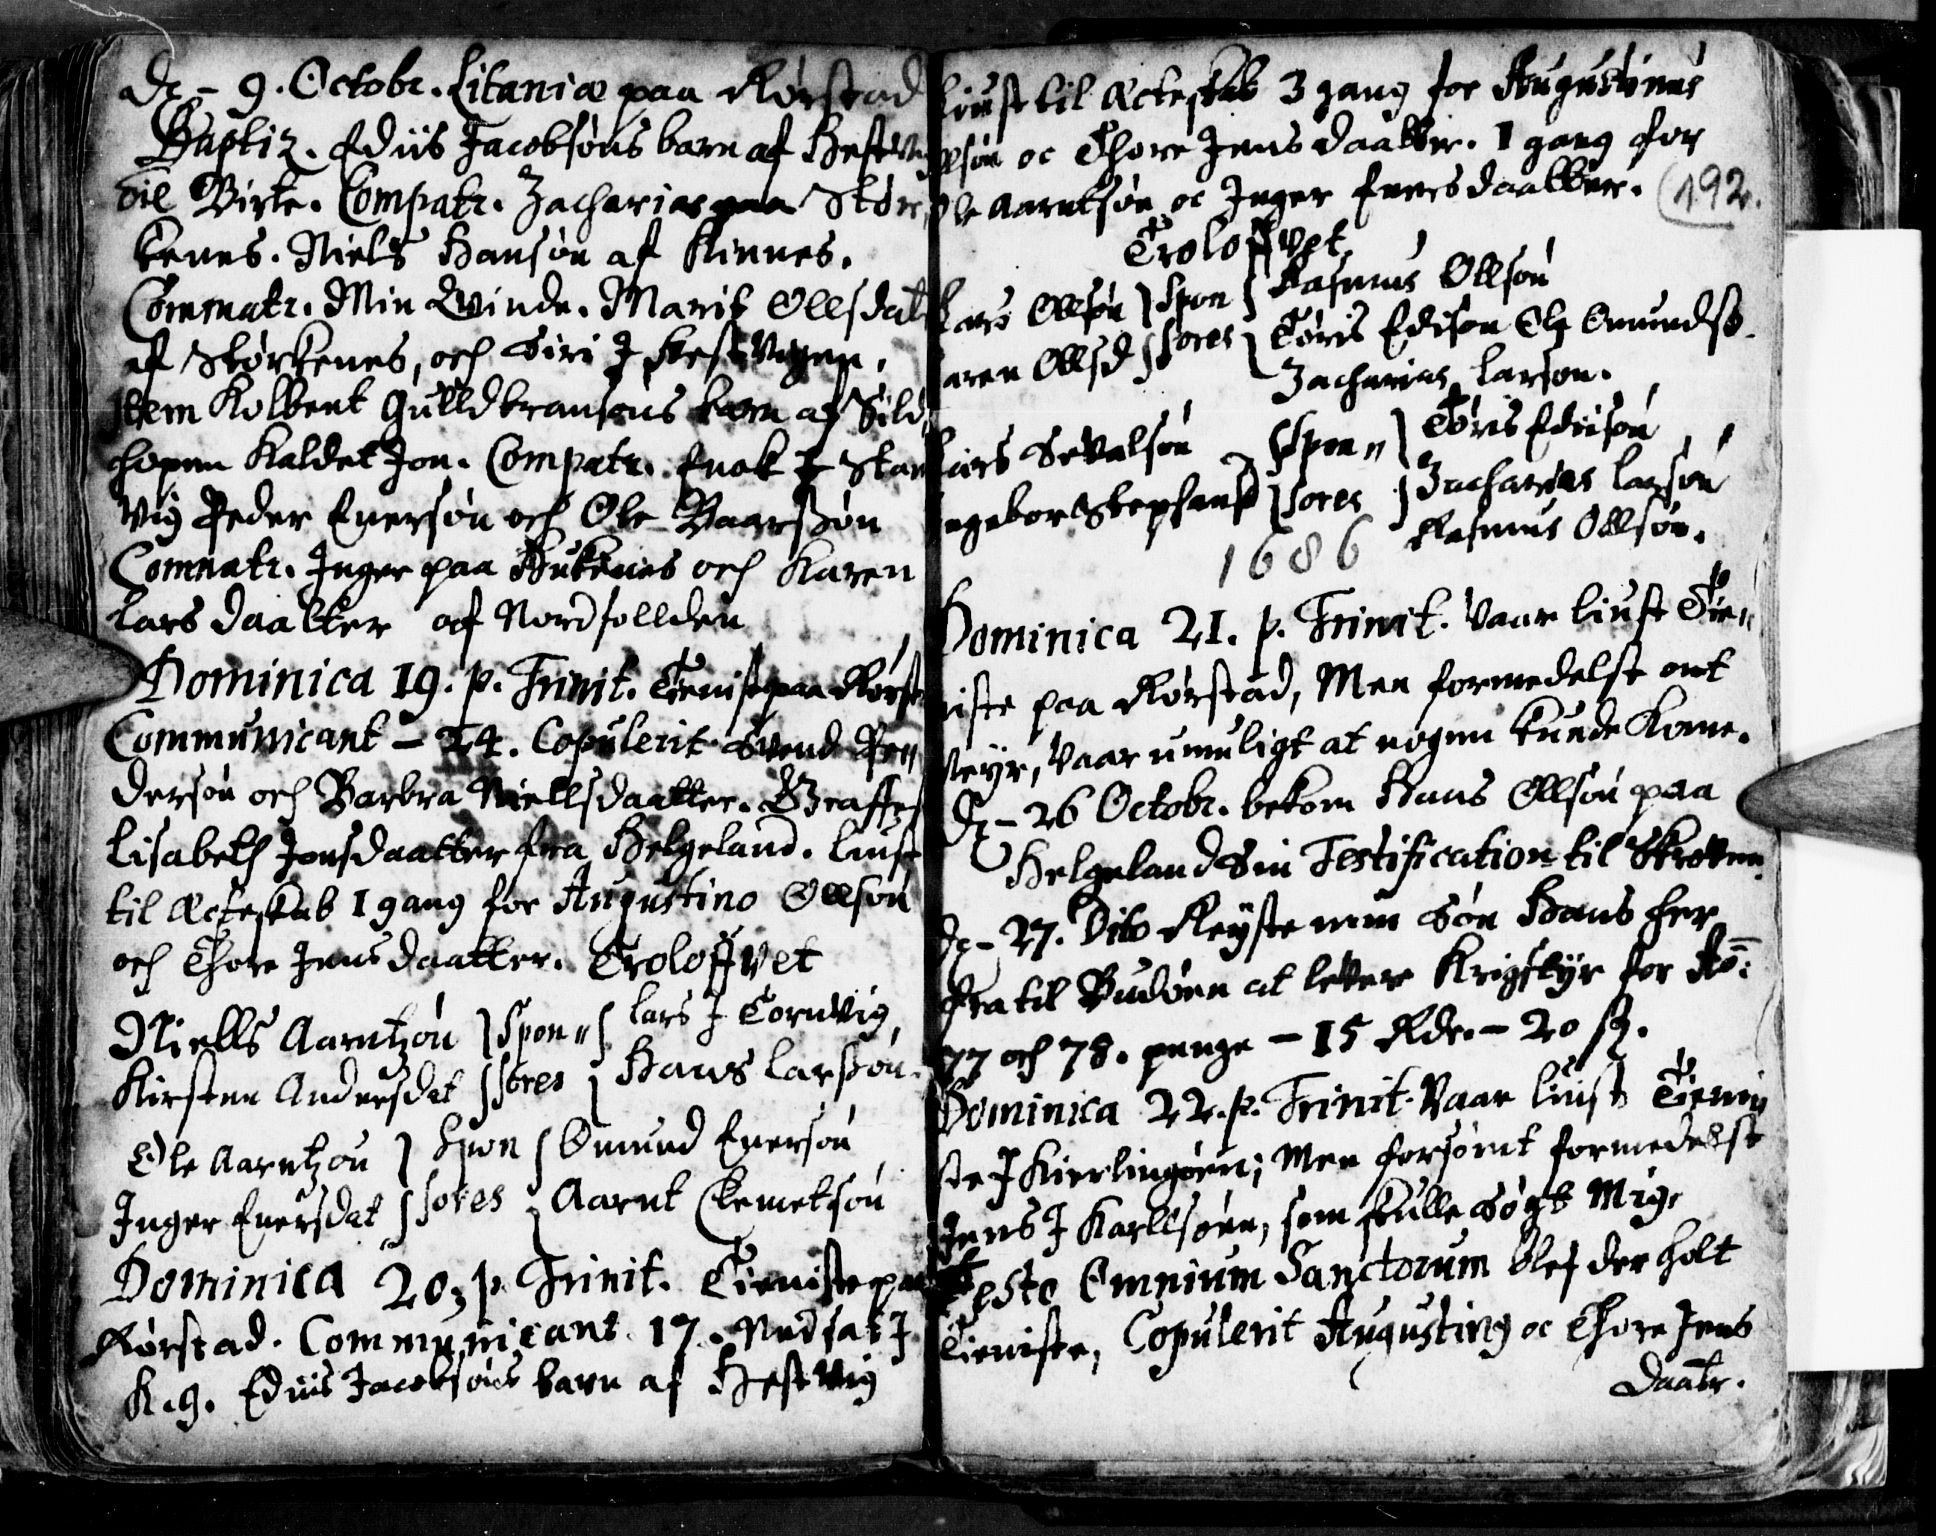 D. - 9. Octobr. Litaniæ paa Rørstad
Baptiz. Ediis Jacobsøns barn af Hestvig
til Birte. Compatr. Zacharias paa Stør,
kenes. Niels Hansøn af Kinnes.
Commatr. Min Qvinde. Marit Ollsdat
af Størkenes, och Siri J Hestvigen.
Item Kolbent Gulldbransøns barn af Sild,
hopen Kaldet Jon. Compatr. Enok J Star
vig Peder Enersøn och Ole Baarsøn
Commatr. Inger paa Bukenes och Karen
Lars daatter af Nordfollden
Dominica 19. p. Trinit. Tieniste paa Rørst
Communicant - 24. Copulerit Svend Pe„
dersøn och Barbra Niellsdaatter. Graffest
Lisabeth Jonsdaatter fra Helgeland. Liust
til Ecteskab 1 gang for Augustino Ollsøn
och Thore Jensdaatter. Troloffvet
Niells Aarntzøn } Spon„ { Lars J Tornvig,
Kirsten Andersdat } sores { Hans Larsøn.
Ole Aarntzøn } Spon { Omund Enersøn
Inger Enersdat } sores { Aarnt Clemetsøn
Dominica 20. p. Trinit. Tieniste paa
Rørstad. Communicant 17. Nedsat J
K. g. Ediis Jacobsøns barn af Hestvig
Liust til Ecteskab 3 gang for Augustinus
Ollsøn oc Thore Jensdaatter. 1 gang for
Ole Aarntsøn oc Inger Enersdaatter. 192.
Troloffvet
Lars Ollsøn } Spon { Rasmus Ollsøn
Karen Ollsd } sores { Tøris Edisøn Ole Omundss.
Zacharias Larsøn.
Lars Sevalsøn { Spon„ } Tøris Ediisøn
Ingebor Stephansd { sores } Zacharias Larsøn
1686 Rasmus Ollsøn.
Dominica 21. p. Trinit. Vaar liust Tie„
niste paa Rørstad, Men formedelst ont
Veyr, Vaar umuligt at nogen kunde Kome.
D. - 26 Octobr. bekom Hans Ollsøn paa
Helgeland Sin Testification til Skroven.
D. - 27. Dito Reyste min Søn Hans her
fra til Budøen at levere Krigstyr for Ao:
77 och 78. penge - 15 Rdr. - 20 sz.
Dominica 22. p. Trinit. Vaar liust Tieni
ste J Kierlingøen; Men forsømt formedelst
Jens J Karllsøen, som skulle Søgt Mig.
Festo Omnium Sanctorum blef der holt
Tieniste, Copulerit Augusting oc Thore Jens
Daatr.